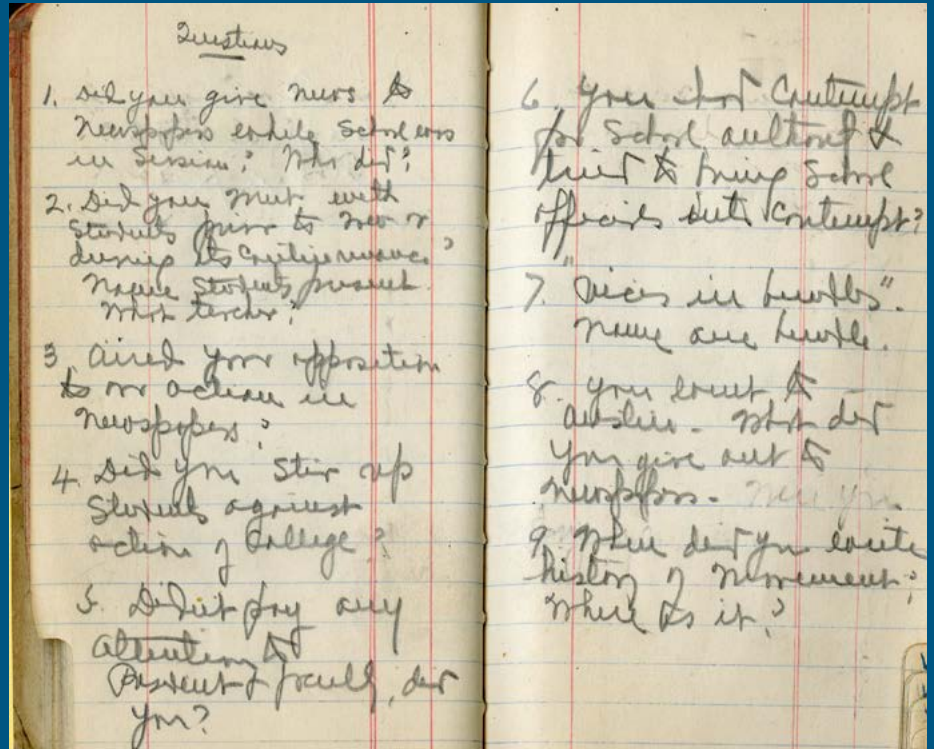 Questions
1. Did you give news to
Newspapers while School was
in Session? Who did?
2. Did you meet with
Students prior to or
during its Continuance?
Name Students present.
What teacher?
3 Aired your opposition
to our action in
Newspapers?
4. Did you Stir up
Students against
action of College?
5. Didn't pay any
attention to
President & faculty, did
you?
6. You had Contempt
for School authority &
tried to bring School
officials into Contempt?
7. "Voices in
Name one
8. You went to
Austin - What did
you give out to
newspapers -
9. When did you write
history of Movement?
Where is it?